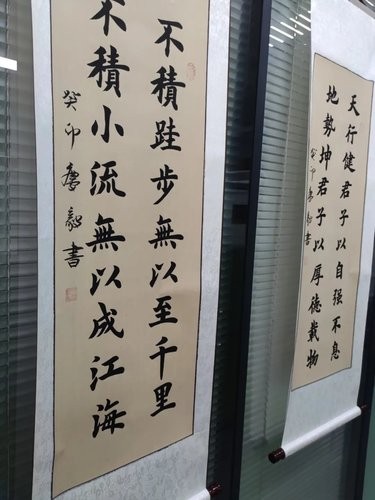 不積跬步無以至千里
不積小流無以成江海
癸卯 毅書
天行健君子以自强不息
地勢坤君子以厚德載物
癸卯